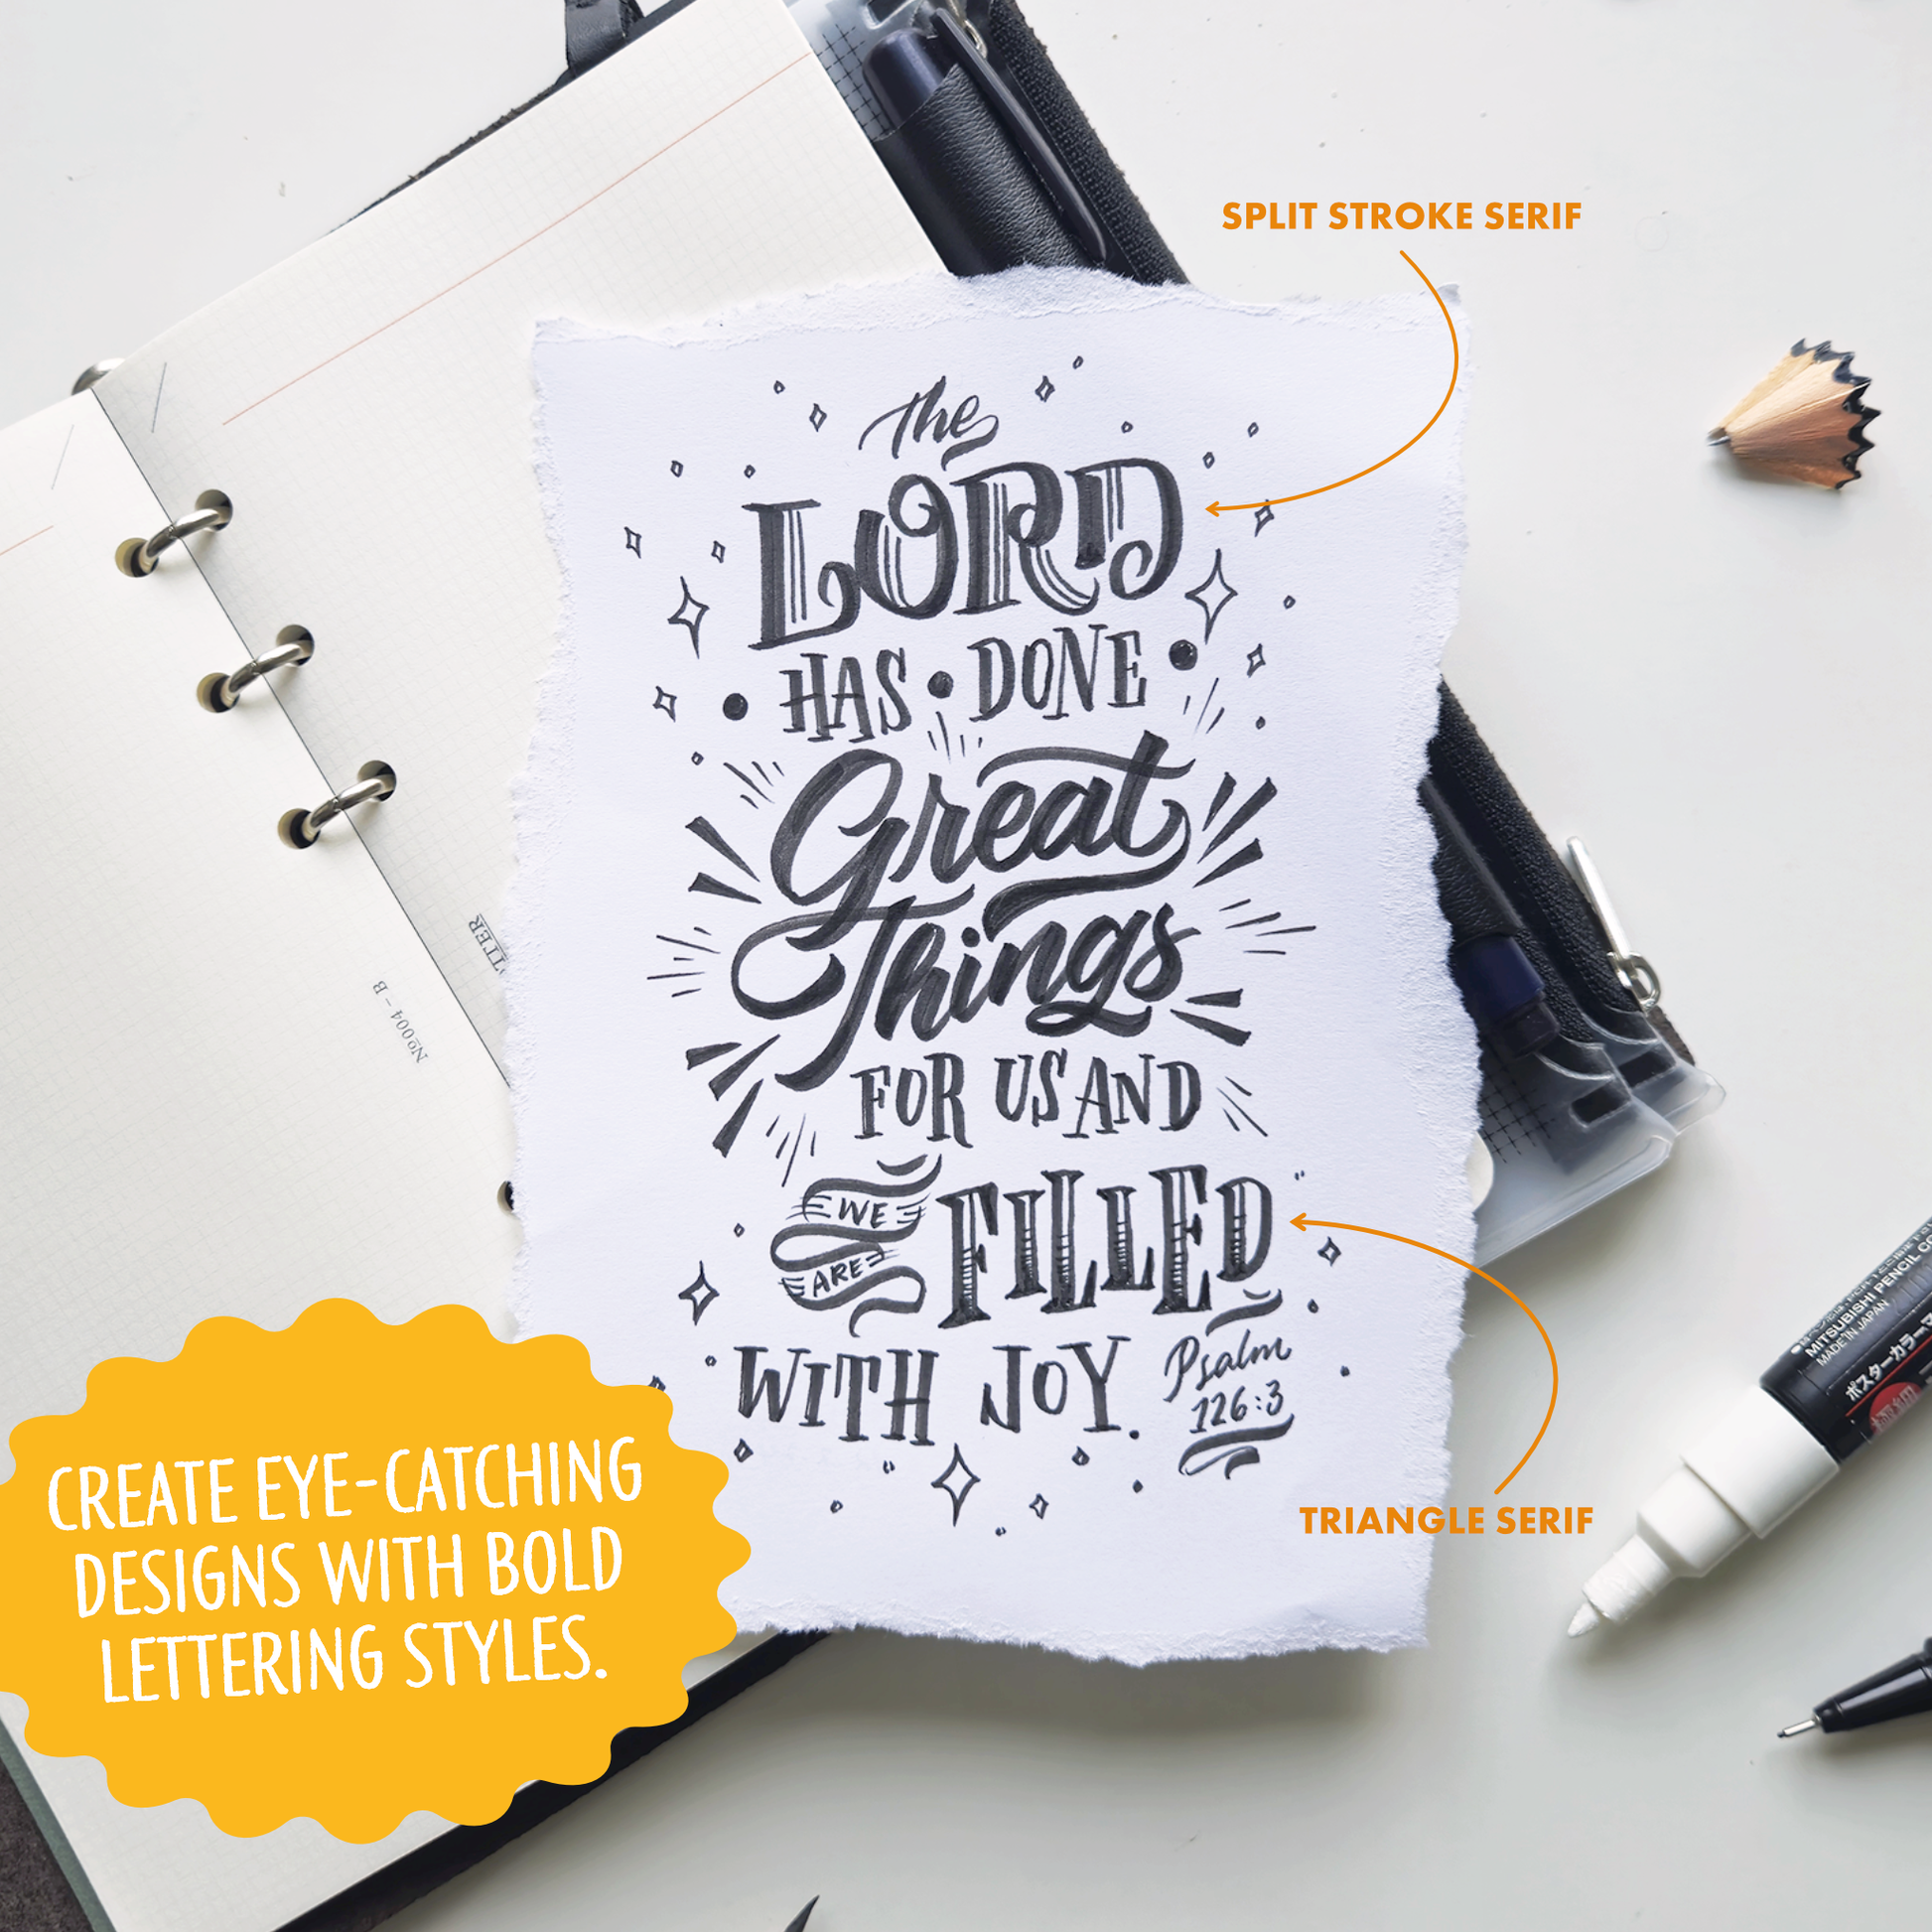 SPLIT STROKE SERIF
the
LORD
HAS • DONE
Great
Things
FOR US AND
WE
ARE
FILLED
WITH JOY.
Psalm
126:3
TRIANGLE SERIF
CREATE EYE-CATCHING
DESIGNS WITH BOLD
LETTERING STYLES.
TTER
Nº004 – B
MITSUBISHI PENCIL CO
MADE IN JAPAN
ポスターカラーマ